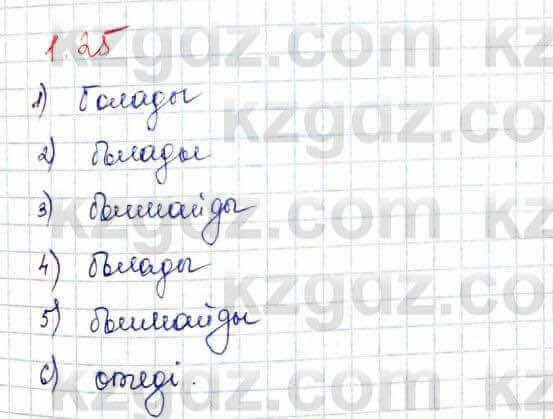 1.25
1) болады
2) болады
3) болмайды
4) болады
5) болмайды
6) өтеді.
kzgdz.com
kzgdz.com
kzgdz.com
kzgdz.com
kzgdz.com
kzgdz.com
kzgdz.com